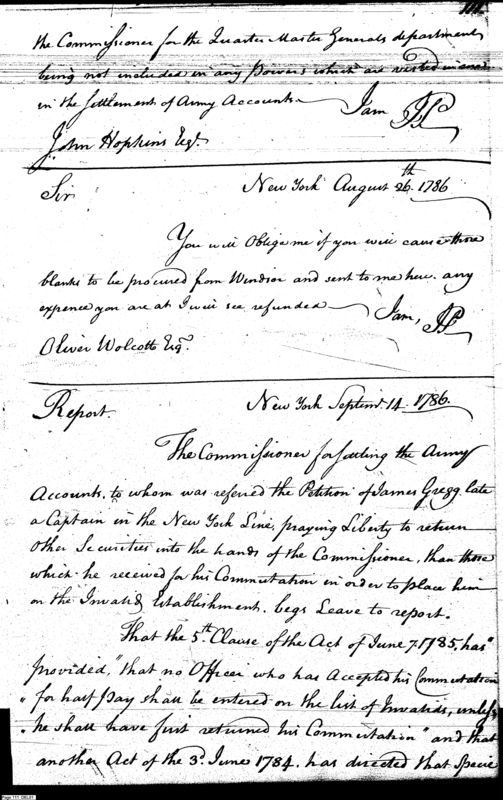 111
the Commissioner for the Quarter Master Generals department
being not included in any powers which are vested in me
in the settlement of Army Accounts
I am JP
John Hopkins Esqr.
New York August 26th 1786
Sir
You will oblige me if you will cause those
blanks to be procured from Windsor and sent to me here. any
expence you are at I will see refunded
I am, JP
Oliver Wolcott Esqr.
New York Septemr. 14. 1786.
Report.
The Commissioner for settling the Army
Accounts, to whom was referred the Petition of James Gregg late
a Captain in the New York Line, praying Liberty to return
other Securities into the hands of the Commissioner, than those
which he received for his Commutation in order to place him
on the Invalid Establishment. begs Leave to report.
That the 5th Clause of the Act of June 7. 1785, has"
provided, "that no Officer who has Accepted his Commutation
"for half Pay shall be entered on the list of Invalids, unless
"he shall have first returned his Commutation" and that
another Act of the 3d. June 1784. has directed that Specie